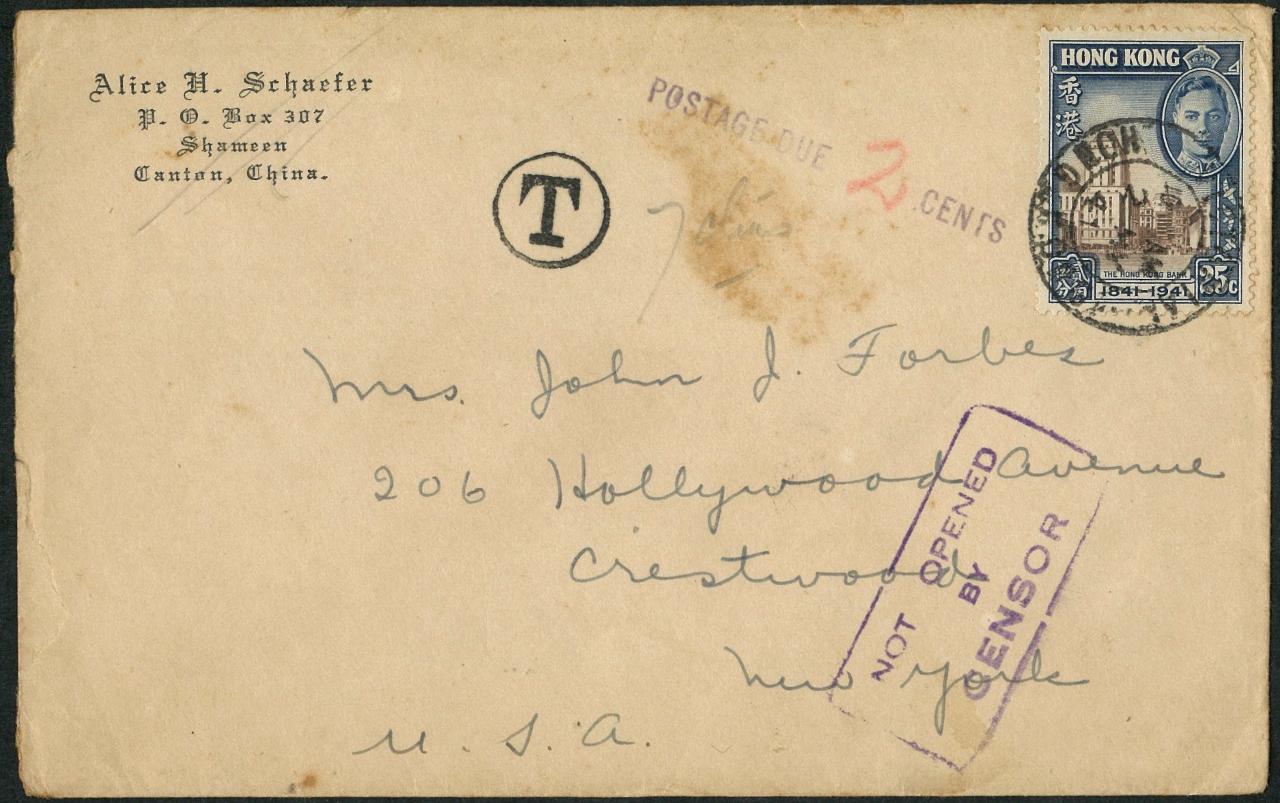 Alice H. Schaefer
P. O. Box 307
Shameen
Canton, China.
T
POSTAGE DUE 2 CENTS
HONG KONG
香港
THE HONG KONG BANK
1841-1941
25c
HONG KONG
Mrs. John J. Forbes
206 Hollywood Avenue
Crestwood
New York
U. S. A.
NOT OPENED
BY
CENSOR